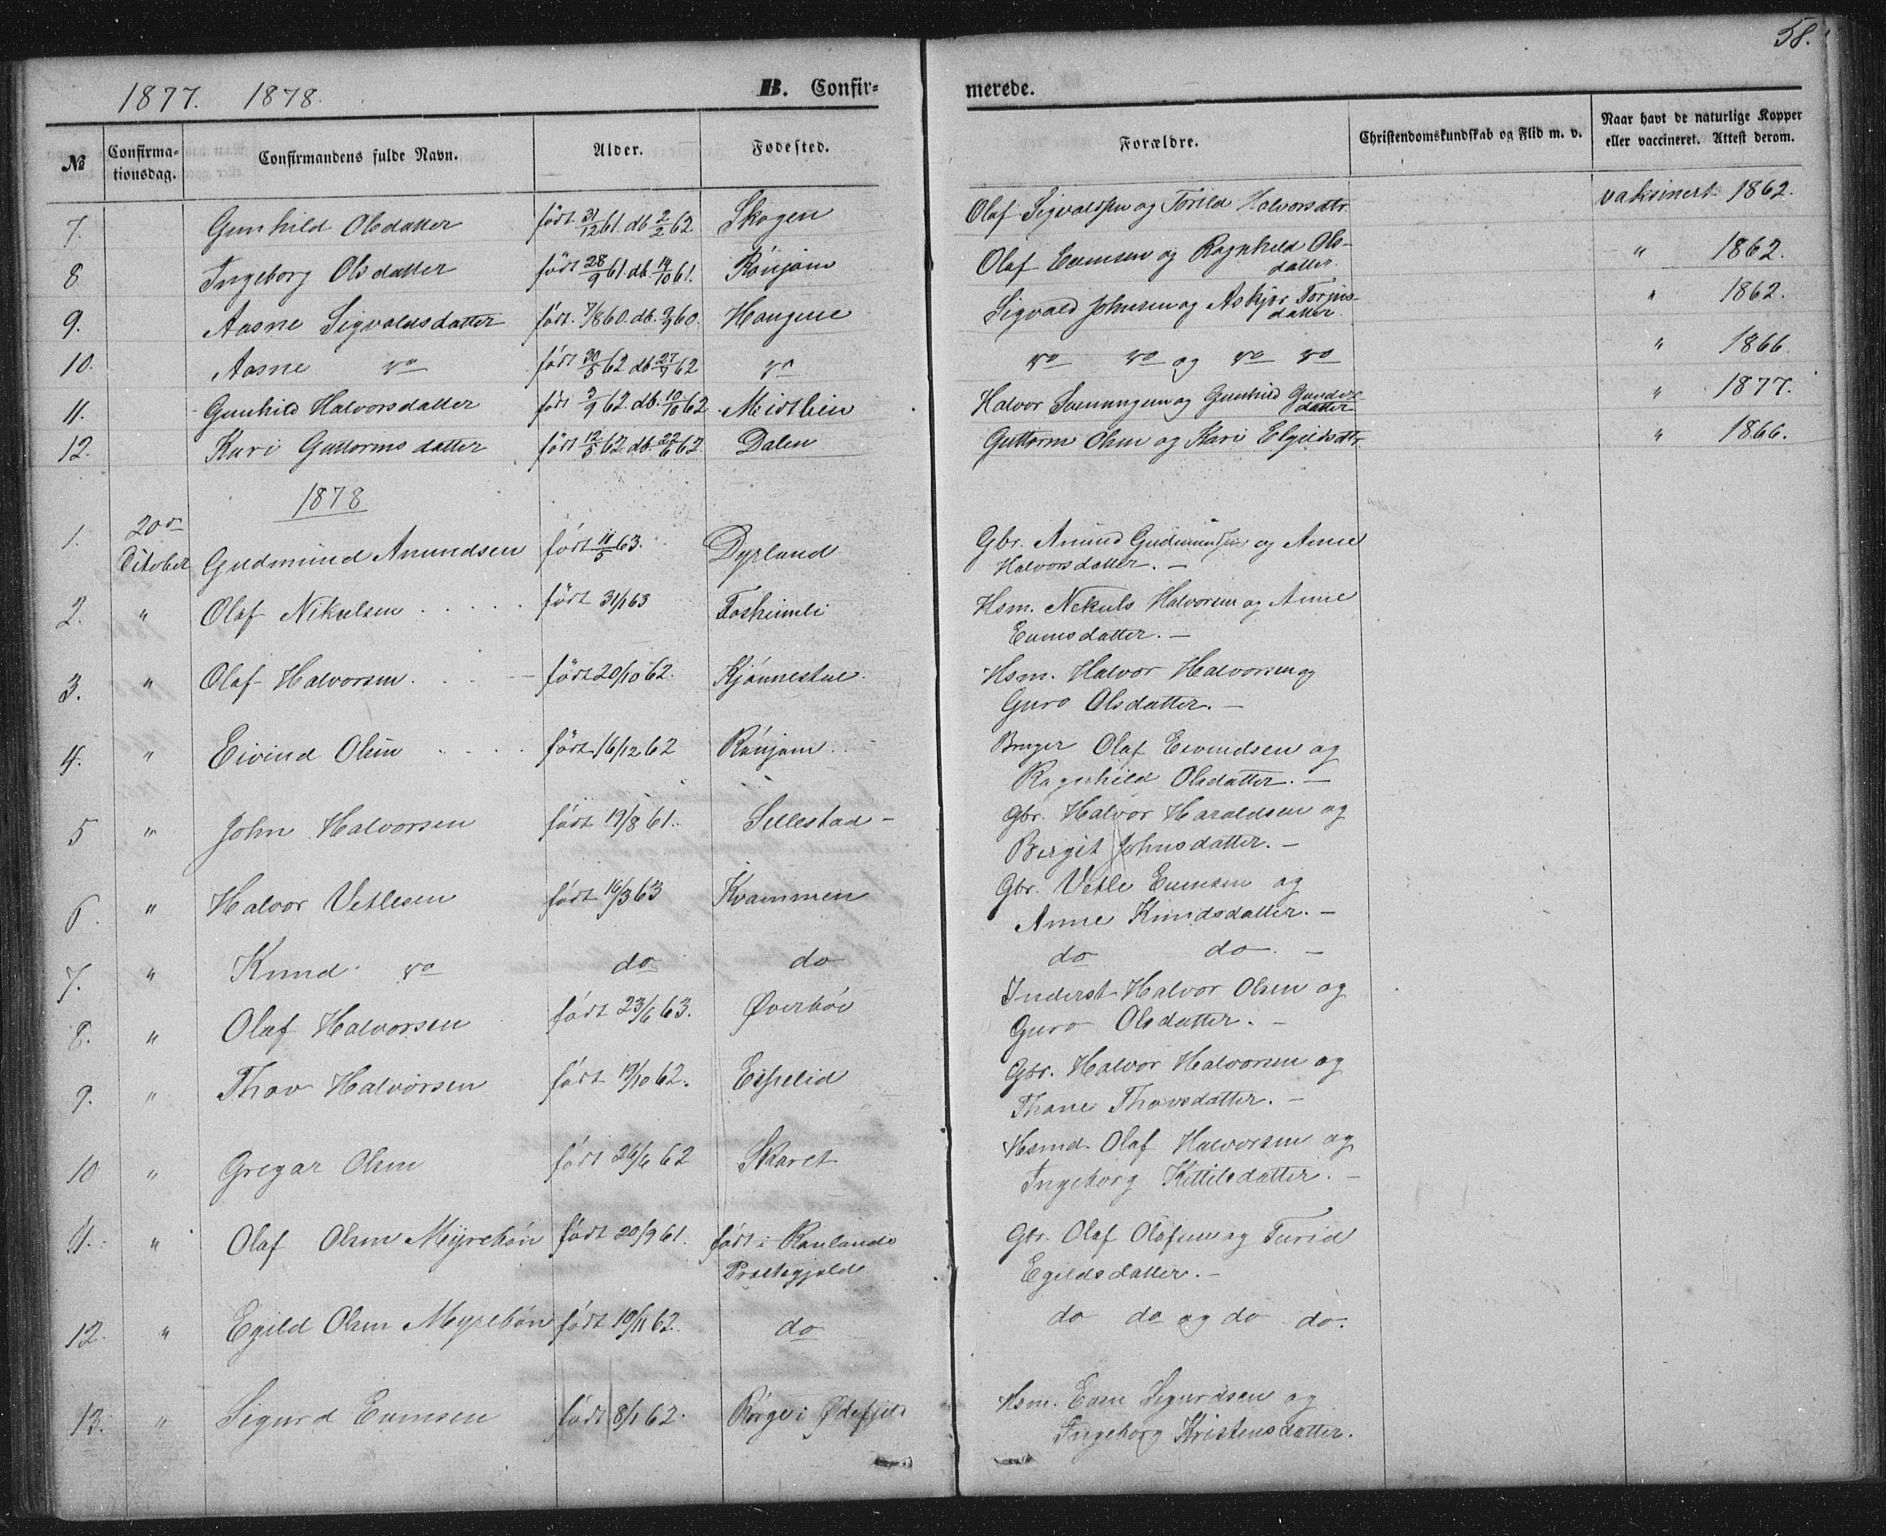 58.
1877. 1878. B. Confir- merede.
№ Confirma-tionsdag. Confirmandens fulde Navn. Alder. Fødested. Forældre. Christendomskundskab og Flid m. v. Naar havt de naturlige Kopper eller vaccineret. Attest derom.
7. Gunhild Olsdatter født 31/12 61. db 2/2 62 Skogen Olaf Sigvaldsen og Torild Halvorsdtr. vaksinert 1862.
8 Ingeborg Olsdatter født 28/9 61 db. 14/10 61. Rónjom Olaf Evensen og Ragnhild Ols-datter. " 1862.
9. Aasne Sigvaldsdatter født 7/8 60. db. 2/9 60. Haugene Sigvald Johnsen og Askjer Torjus-datter. " 1862.
10. Aasne do født 30/5 62 db 27/7 62 do do do og do do " 1866.
11. Gunhild Halvorsdatter født 3/9 62. db. 10/10 62. Midtlien Halvor og Gunhild Gunders-datter " 1877.
12. Kari Guttormsdatter født 12/5 62. db. 22/6 62. Dalen Guttorm Olsen og Kari Egildsdtr. " 1866.
1878
1. 20de October Gudmund Amundsen født 11/5 63. Dyrland Gbr. Amund Gudmundsen og Anne
Halvorsdatter. –
2. " Olaf Nikulsen født 31/1 63 Fosheimli Hsm. Nekuls Halvorsen og Anne
Evensdatter. –
3. " Olaf Halvorsen født 20/10 62. Kjónnestul Hsm. Halvor Halvorsen og
Guro Olsdatter. –
4. " Eivind Olsen født 16/12 62 Rónjom Bruger Olaf Eivindsen og
Ragnhild Olsdatter. –
5 " John Halvorsen født 19/8 61. Sillestad – Gbr. Halvor Haraldsen og
Bergit Johnsdatter. –
6. " Halvor Vetlesen født 16/3 63 Kvammen Gbr. Vetle Evensen og
Anne Knudsdatter. –
7. " Knud do do do do do –
8. " Olaf Halvorsen født 23/6 63. Øverbóe Inderst Halvor Olsen og
Guro Olsdatter. –
9. " Thov Halvorsen født 19/10 62. Espelid Gbr. Halvor Halvorsen og
Thone Thovsdatter. –
10 " Gregar Olsen født 26/4 62 Skaret Hsmd. Olaf Halvorsen og
Ingeborg Kittilsdatter. –
11. " Olaf Olsen Myrebóen født 20/9 61. født i Raulands Gbr. Olaf Olafsen og Turid
Præstegjeld Egildsdatter. –
12. " Egild Olsen Myrebóen født 10/11 62. do do do og do do.
13. " Sigurd Evensen født 8/1 62. Rórge i Hsm. Even Sigurdsen og
Ingeborg Kristensdatter.